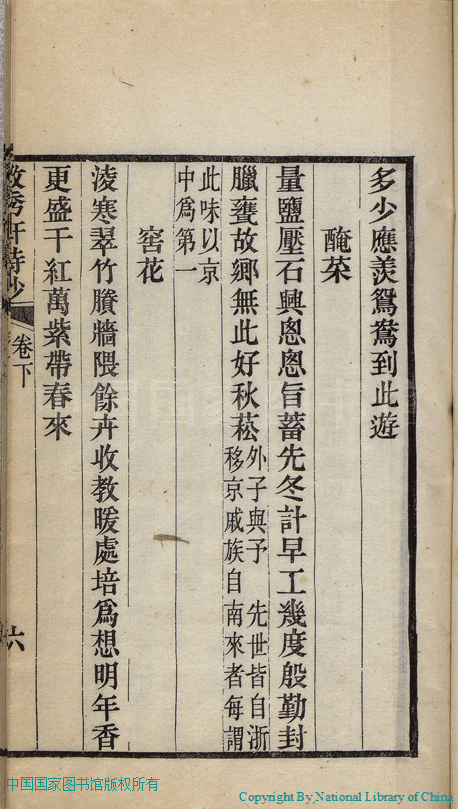 多少應羨鴛鴦到此遊
醃菜
量鹽壓石興悤悤旨蓄先冬計早工幾度殷勤封
臘甕故鄉無此好秋菘
外子與予 先世皆自浙
移京戚族自南來者每謂
此味以京
中爲第一
窖花
淩寒翠竹賸牆隈餘卉收教暖處培爲想明年香
更盛千紅萬紫帶春來
卷下
六
中国国家图书馆版权所有
Copyright By National Library of China